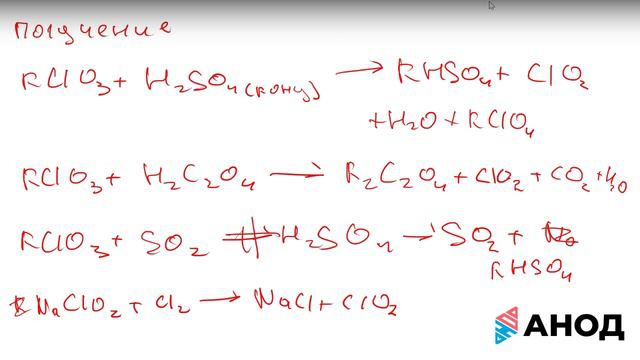 получение
KClO3 + H2SO4 (конц) → KHSO4 + ClO2
+ H2O + KClO4
KClO3 + H2C2O4 → K2C2O4 + ClO2 + CO2 + H2O
KClO3 + SO2 + H2SO4 → SO2 +
KHSO4
NaClO2 + Cl2 → NaCl + ClO2
АНОД